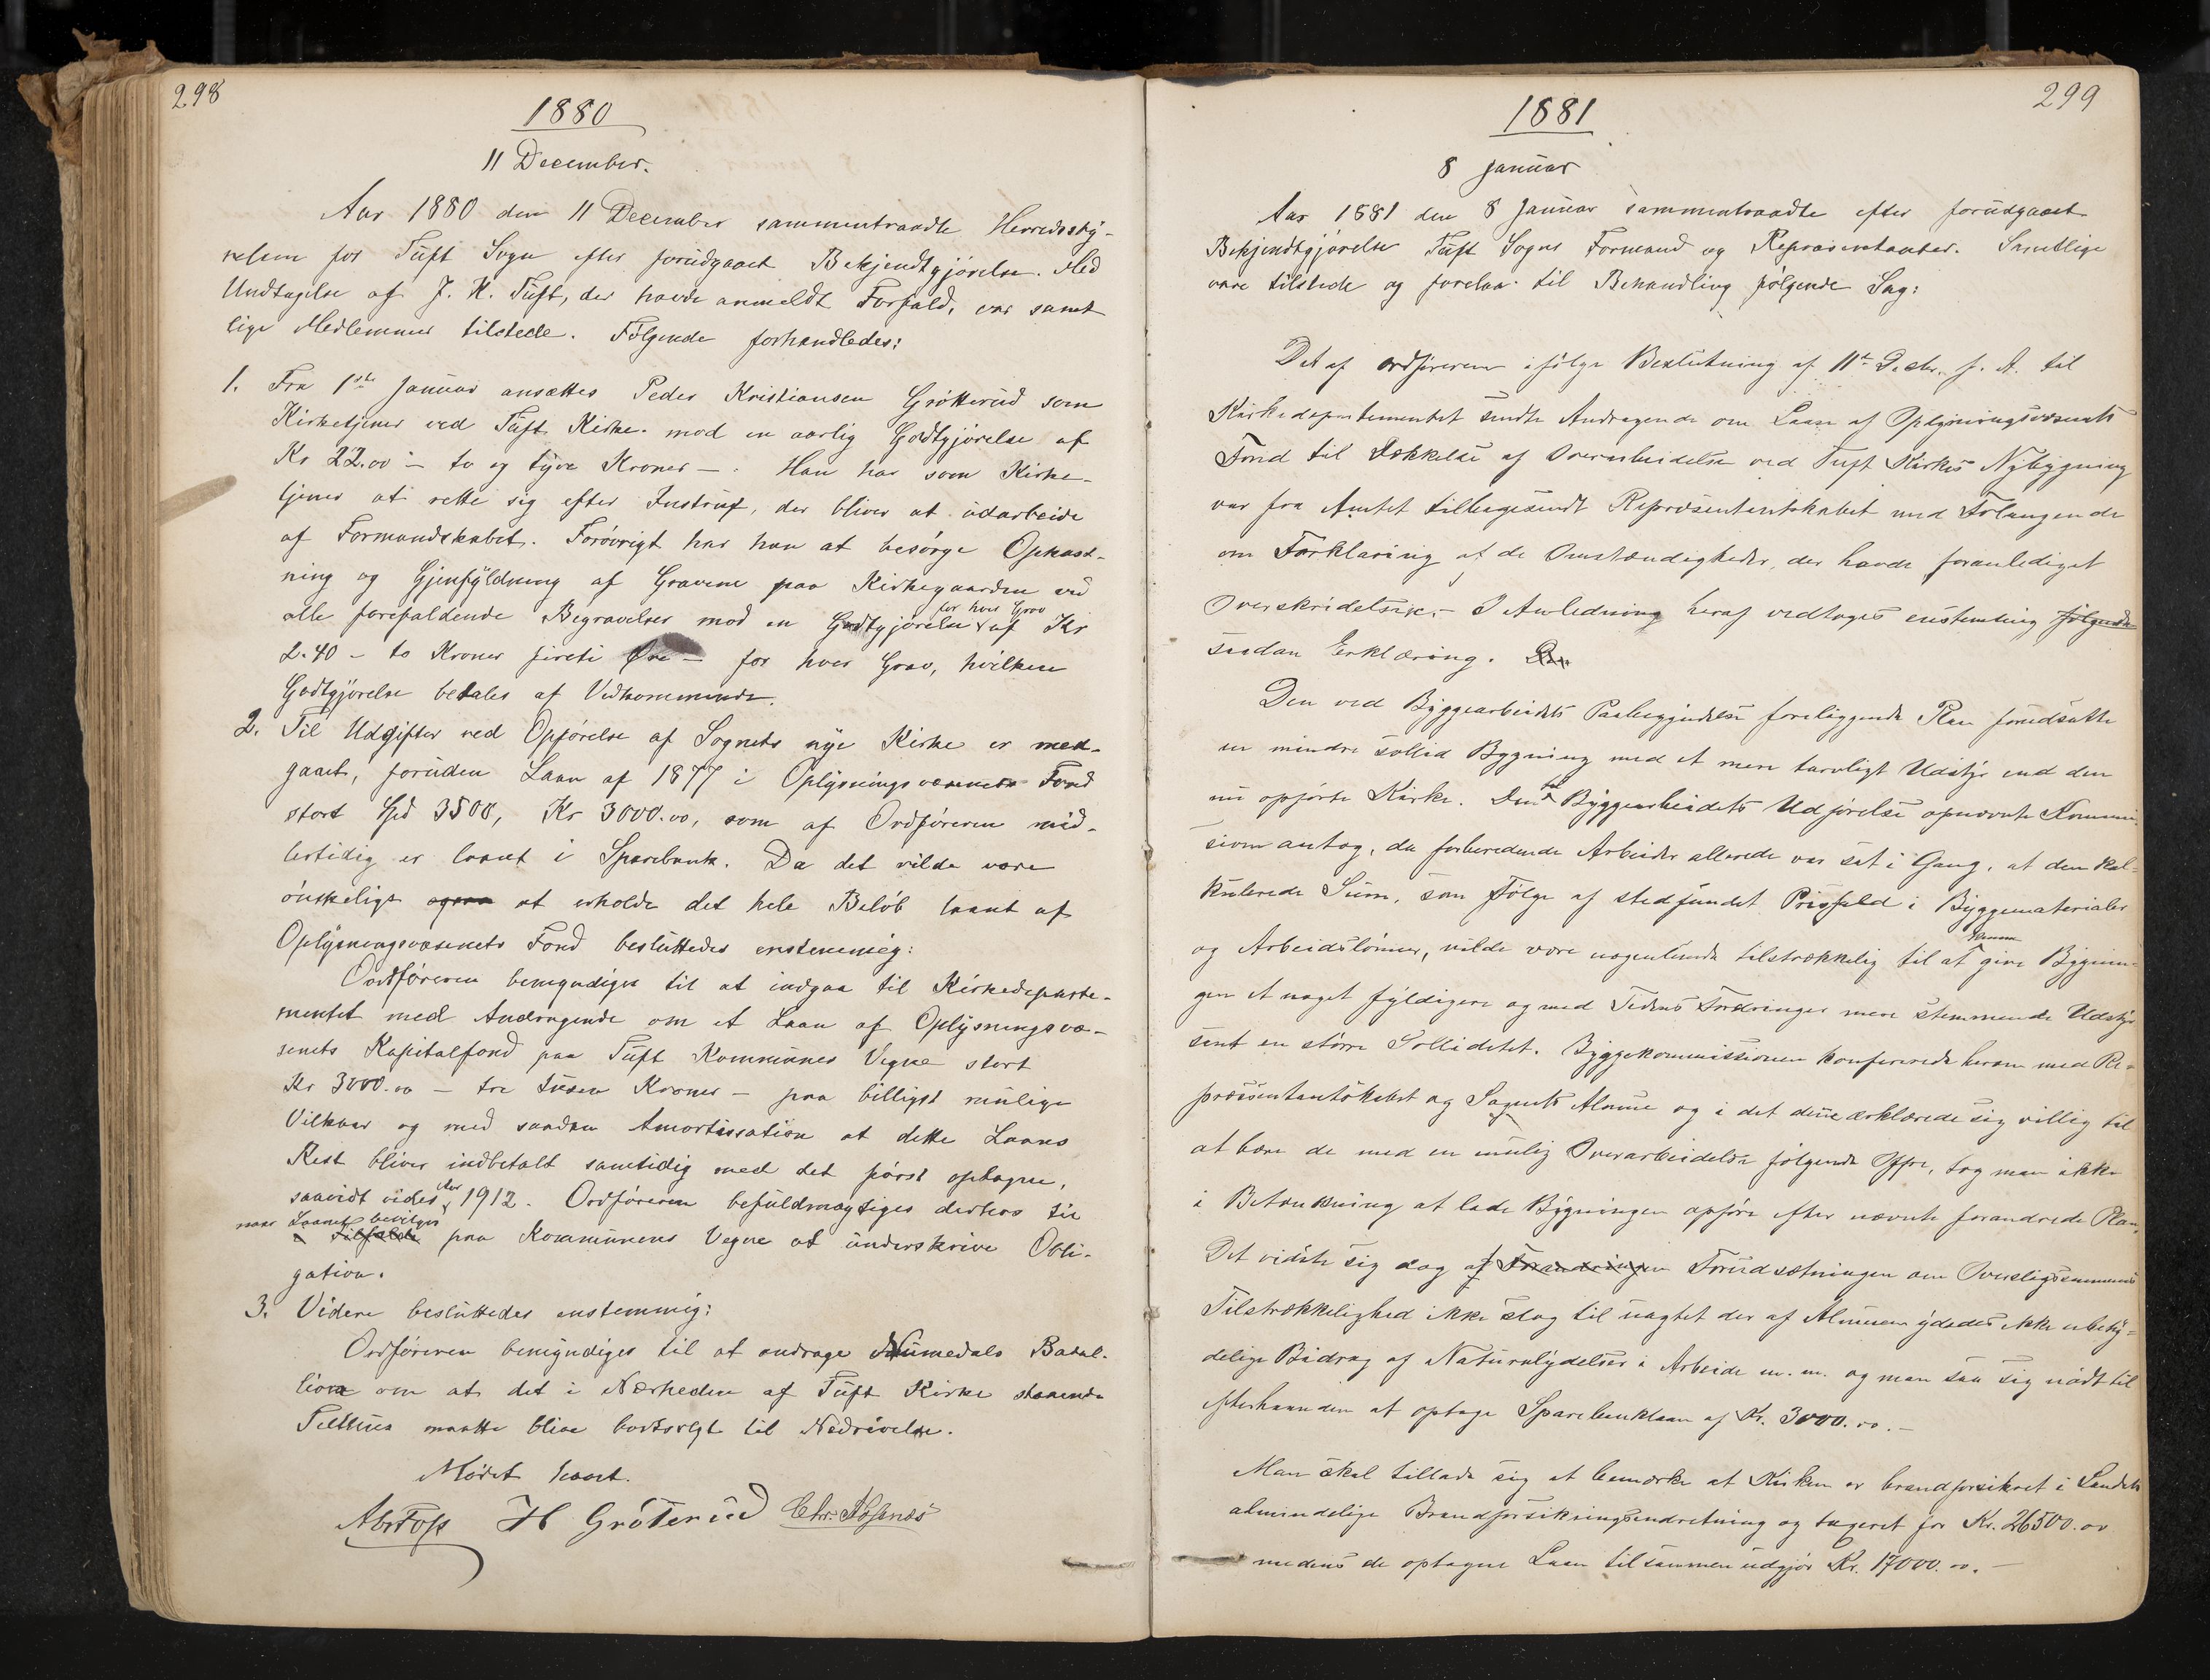 298
1880
11 December.
Aar 1880 den 11 December sammentraadte Herredssty-
relsen for Tuft Sogn efter forudgaaet Bekjendtgjørelse. Med
Undtagelse af J. K. Tuft, der havde anmeldt Forfald, var samt
lige Medlemmer tilstede. Følgende forhandledes:
1. Fra 1ste Januar ansættes Peder Kristiansen Grøtterud som
Kirketjener ved Tuft Kirke mod en aarlig Godtgjørelse af
Kr 22.00 – to og tyve Kroner –. Han har som Kirke-
tjener at rette sig efter Instrux, der bliver at udarbeide
af Formandskabet. Forøvrigt har han at besørge Opkast-
ning og Gjenfyldning af Gravene paa Kirkegaarden ved
for hver Grav
alle forefaldende Begravelser mod en Godtgjørelse af Kr
2.40 – to Kroner firti Øre – for hver Grav, hvilken
Godtgjørelse betales af Vedkommende.
2. Til Udgifter ved Opførelse af Sognets nye Kirke er med-
gaaet, foruden Laan af 1877 i Oplysningsvæsenets Fond
stort Spd 3500, Kr 3000.00, som af Ordføreren mid-
lertidig er laant i Sparebank. Da det vilde være
ønskeligt at erholde det hele Beløb laant af
Oplysningsvæsenets Fond besluttedes enstemmig:
Ordføreren bemyndiges til at indgaa til Kirkedeparte-
mentet med Andragende om et Laan af Oplysningsvæ-
senets Kapitalfond paa Tuft Kommunes Vegne stort
Kr 3000.00 – tre tusen Kroner – paa billigst mulige
Vilkaar og med saadan Amortissation at dette Laans
Rest bliver indbetalt samtidig med det først optagne,
saavidt vides 1912. Ordføreren befuldmægtiges derhos til
naar Laanet bevilges
i Tilfælde paa Kommunens Vegne at underskrive Obli-
gation.
3. Videre besluttedes enstemmig:
Ordføreren bemyndiges til at andrage Numedals Batal-
lion om at det i Nærheden af Tuft Kirke staaende
Telthus maatte blive bortsolgt til Nedrivelse.
Mødet hævet.
H Gröterud Chr. Aasnæs
299
1881
8 Januar
Aar 1881 den 8 Januar sammentraadte efter forudgaaet
Bekjendtgjørelse Tuft Sogns Formand og Repræsentanter. Samtlige
vare tilstede og forelaa til Behandling følgende Sag:
Det af Ordføreren ifølge Beslutning af 11te Decbr. f. A. til
Kirkedepartementet sendte Andragende om Laan af Oplysningsvæsenets
Fond til Dækkelse af Overarbeidelse ved Tuft Kirkes Nybygning
var fra Amtet tilbagesendt Repræsentantskabet med Forlangende
om Forklaring af de Omstændigheder, der havde foranlediget
Overskridelsen. – I Anledning heraf vedtoges enstemmig følgende
saadan Erklæring. Den
Den ved Byggearbeidets Paabegyndelse foreliggende Plan forudsatte
en mindre sollid Bygning med et mere tarveligt Udstyr end den
nu opførte Kirke. Den til Byggearbeidets Udførelse opnævnte Kommi-
sion antog, da forberedende Arbeider allerede var sat i Gang, at den kal-
kulerede Sum, som Følge af stedfundet Prisfald i Byggematerialer
og Arbeidslønner, vilde være nogenlunde tilstrækkelig til at give Bygnin-
gen et noget fyldigere og med Tidens Fordringer mere stemmende Udstyr
samt en større Solliditet. Byggekommissionen konfererede herom med Re-
præsentantskabet og Sognets Almue og i det denne erklærede sig villig til
at bære de med en mulig Overarbeidelse følgende Offre, tog man ikke
i Betænkning at lade Bygningen opføre efter nævnte forandrede Plan.
Det viste sig dog af Forandringen Forudsætningen om Overslagssummens
Tilstrækkelighed ikke slog til uagtet der af Almuen ydedes ikke ubety-
delige Bidrag af Naturalydelser i Arbeide m. m. og man saa sig nødt til
efterhaanden at optage Sparebanklaan af Kr. 3000.00. –
Man skal tillade sig at bemærke at Kirken er brandforsikret i Landets
almindelige Brandforsikringsindretning og taxeret for Kr. 26500.00
medens de optagne Laan tilsammen udgjør Kr. 17000.00. –